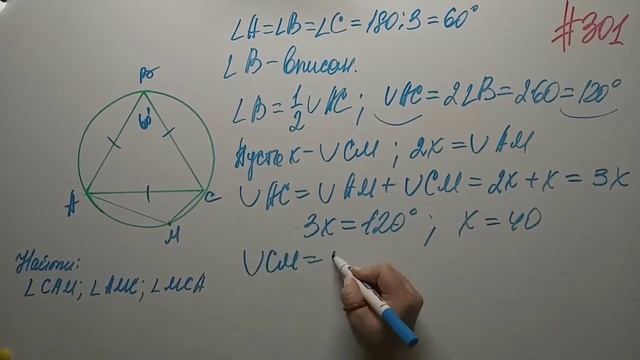 #301
∠A=∠B=∠C=180:3=60°
∠B-вписан.
∠B=1/2∪AC; ∪AC=2∠B=260=120°
Пусть x-∪CM; 2x=∪AM
∪AC=∪AM+∪CM=2x+x=3x
3x=120°; x=40
∪CM=
B
60°
A
C
M
Найти:
∠CAM; ∠AMC; ∠MCA